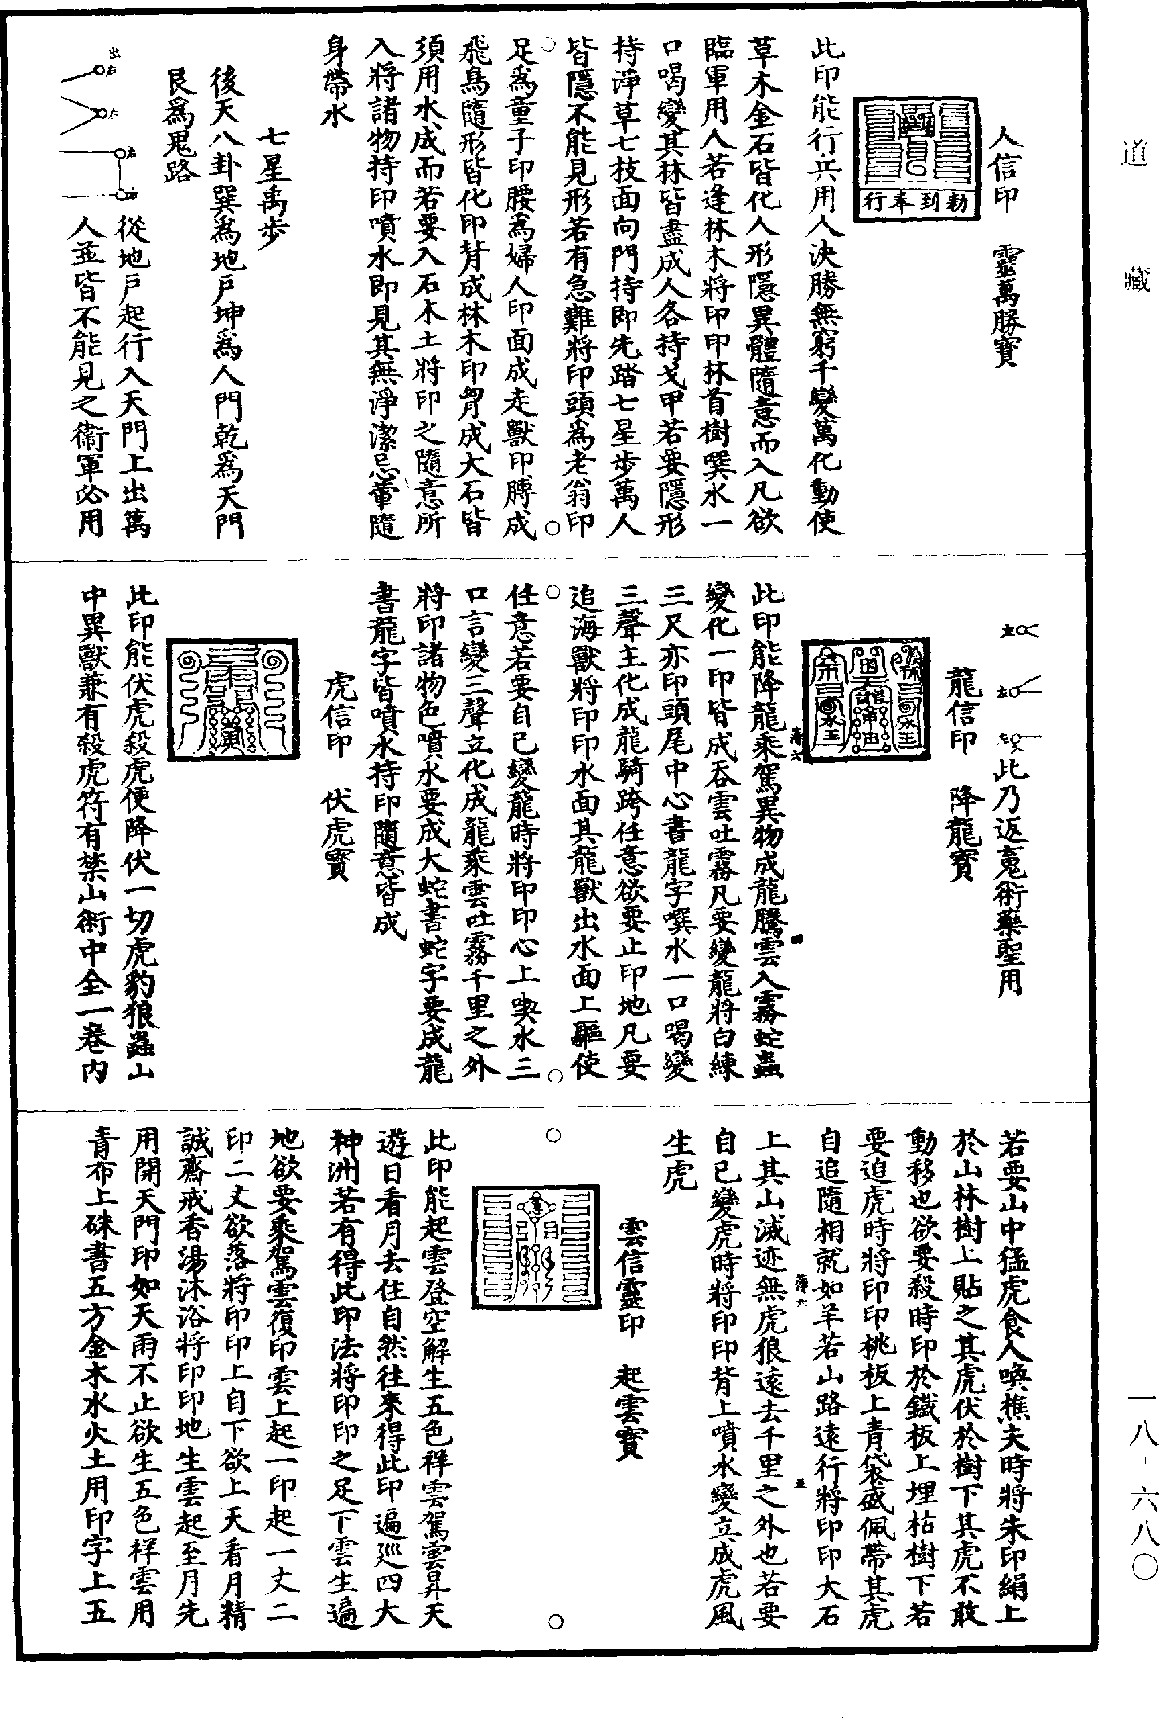 道藏
一八-六八〇
人信印　靈萬勝寶
勑到奉行
此印能行兵用人決勝無窮千變萬化動使
草木金石皆化人形隱異體隨意而入凡欲
臨軍用人若逢林木將印印林首樹噀水一
口喝變其林皆盡成人各持戈甲若要隱形
持淨草七枝面向門持即先踏七星步萬人
皆隱不能見形若有急難將印頭為老翁印
足為童子印腰為婦人印面成走獸印膊成
飛鳥隨形皆化印背成林木印胷成大石皆
須用水成而若要入石木土將印之隨意所
入將諸物持印噴水即見其無淨潔忌葷隨
身帶水
七星禹步
後天八卦巽為地戶坤為人門乾為天門
艮為鬼路
出右
左
右
從地戶起行入天門上出萬
人並皆不能見之衞軍必用
此乃返䰟術藥聖用
龍信印　降龍寶
此印能降龍乘駕異物成龍騰雲入霧蛇蟲
變化一印皆成吞雲吐霧凡要變龍將白練
三尺亦印頭尾中心書龍字噀水一口喝變
三聲主化成龍騎跨任意欲要止印地凡要
追海獸將印印水面其龍獸出水面上驅使
任意若要自已變龍時將印印心上噀水三
口言變三聲立化成龍乘雲吐霧千里之外
將印諸物色噴水要成大蛇書蛇字要成龍
書龍字皆噴水持印隨意皆成
虎信印　伏虎寶
此印能伏虎殺虎便降伏一切虎豹狼蟲山
中異獸兼有殺虎符有禁山術中全一卷內
若要山中猛虎食人喚樵夫時將朱印絹上
於山林樹上貼之其虎伏於樹下其虎不敢
動移也欲要殺時印於鐵板上埋枯樹下若
要追虎時將印印桃板上青袋盛佩帶其虎
自追隨相就如羊若山路遠行將印印大石
上其山滅迹無虎狼遠去千里之外也若要
自已變虎時將印印背上噴水變立成虎風
生虎
雲信靈印　起雲寶
此印能起雲登空解生五色祥雲駕雲昇天
遊日看月去住自然往來得此印遍巡四大
神洲若有得此印法將印印之足下雲生遍
地欲要乘駕雲復印雲上起一印起一丈二
印二丈欲落將印印上自下欲上天看月精
誠齋戒香湯沐浴將印印地生雲起至月先
用開天門印如天雨不止欲生五色祥雲用
青布上硃書五方金木水火土用印字上五